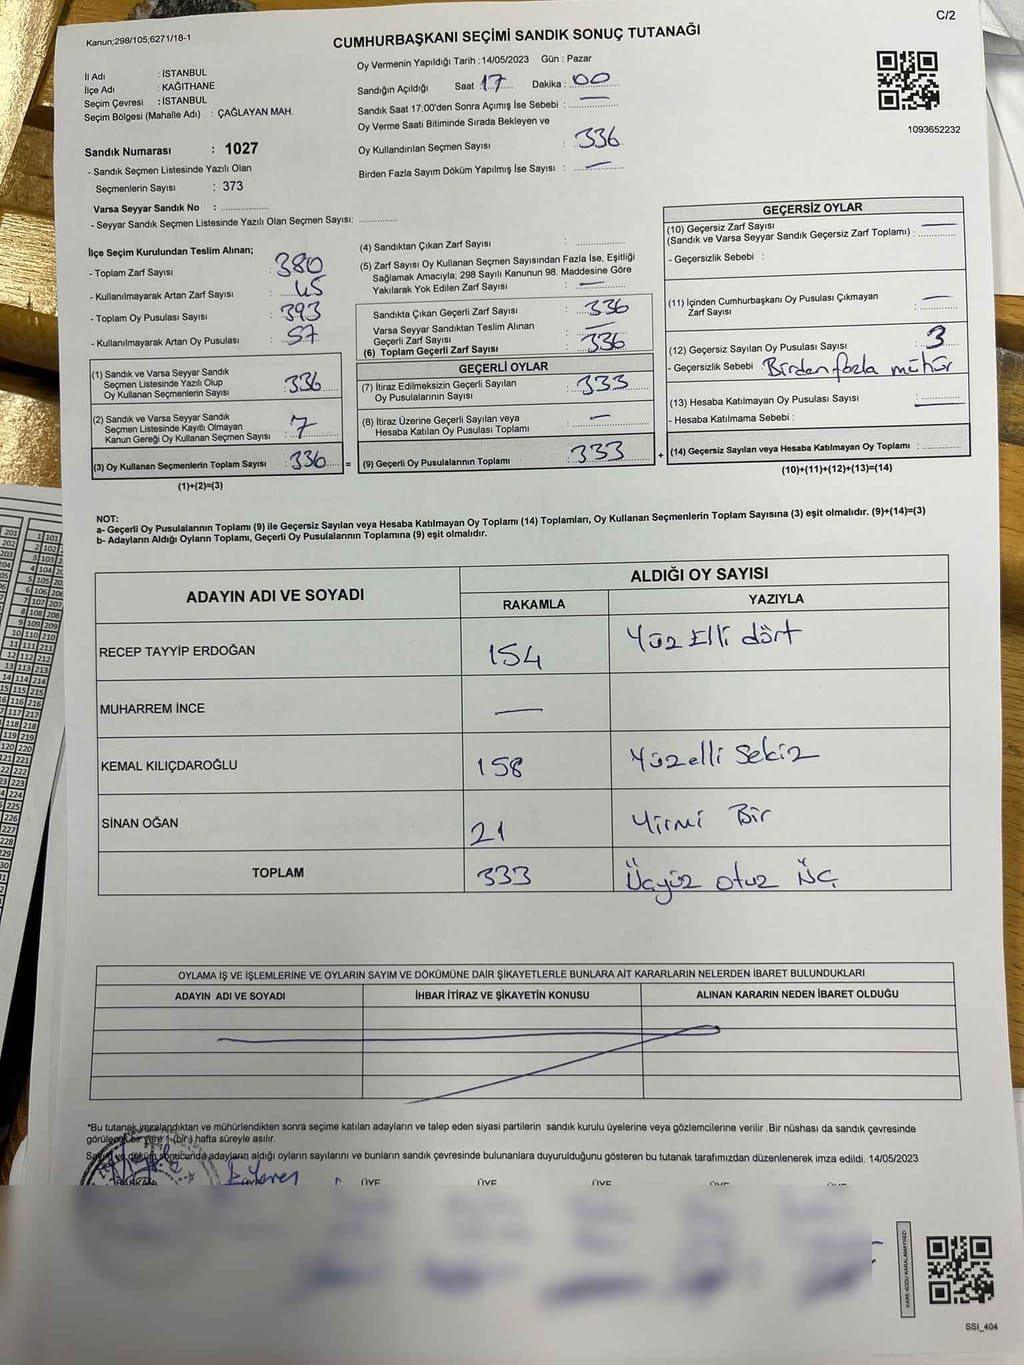 C/2
Kanun;298/105;6271/18-1
CUMHURBAŞKANI SEÇİMİ SANDIK SONUÇ TUTANAĞI
İl Adı : İSTANBUL
İlçe Adı : KAĞITHANE
Seçim Çevresi : İSTANBUL
Seçim Bölgesi (Mahalle Adı) : ÇAĞLAYAN MAH.
Sandık Numarası : 1027
- Sandık Seçmen Listesinde Yazılı Olan
Seçmenlerin Sayısı : 373
Varsa Seyyar Sandık No :
- Seyyar Sandık Seçmen Listesinde Yazılı Olan Seçmen Sayısı:
Oy Vermenin Yapıldığı Tarih : 14/05/2023 Gün : Pazar
Sandığın Açıldığı Saat : 17 Dakika : 00
Sandık Saat 17:00'den Sonra Açımış İse Sebebi : —
Oy Verme Saati Bitiminde Sırada Bekleyen ve
Oy Kullandırılan Seçmen Sayısı : 336
Birden Fazla Sayım Döküm Yapılmış İse Sayısı : —
1093652232
İlçe Seçim Kurulundan Teslim Alınan;
- Toplam Zarf Sayısı : 380
- Kullanılmayarak Artan Zarf Sayısı : 45
- Toplam Oy Pusulası Sayısı : 393
- Kullanılmayarak Artan Oy Pusulası : 57
(1) Sandık ve Varsa Seyyar Sandık
Seçmen Listesinde Yazılı Olup
Oy Kullanan Seçmenlerin Sayısı : 336
(2) Sandık ve Varsa Seyyar Sandık
Seçmen Listesinde Kayıtlı Olmayan
Kanun Gereği Oy Kullanan Seçmen Sayısı : 7
(3) Oy Kullanan Seçmenlerin Toplam Sayısı : 336 =
(1)+(2)=(3)
(4) Sandıktan Çıkan Zarf Sayısı :
(5) Zarf Sayısı Oy Kullanan Seçmen Sayısından Fazla İse, Eşitliği
Sağlamak Amacıyla; 298 Sayılı Kanunun 98. Maddesine Göre
Yakılarak Yok Edilen Zarf Sayısı : —
Sandıkta Çıkan Geçerli Zarf Sayısı : 336
Varsa Seyyar Sandıktan Teslim Alınan
Geçerli Zarf Sayısı : —
(6) Toplam Geçerli Zarf Sayısı : 336
GEÇERLİ OYLAR
(7) İtiraz Edilmeksizin Geçerli Sayılan
Oy Pusulalarının Sayısı : 333
(8) İtiraz Üzerine Geçerli Sayılan veya
Hesaba Katılan Oy Pusulası Toplamı : —
(9) Geçerli Oy Pusulalarının Toplamı : 333 +
GEÇERSİZ OYLAR
(10) Geçersiz Zarf Sayısı
(Sandık ve Varsa Seyyar Sandık Geçersiz Zarf Toplamı) : —
- Geçersizlik Sebebi :
(11) İçinden Cumhurbaşkanı Oy Pusulası Çıkmayan
Zarf Sayısı : —
(12) Geçersiz Sayılan Oy Pusulası Sayısı : 3
- Geçersizlik Sebebi Birden fazla mühür
(13) Hesaba Katılmayan Oy Pusulası Sayısı : —
- Hesaba Katılmama Sebebi :
(14) Geçersiz Sayılan veya Hesaba Katılmayan Oy Toplamı :
(10)+(11)+(12)+(13)=(14)
NOT:
a- Geçerli Oy Pusulalarının Toplamı (9) ile Geçersiz Sayılan veya Hesaba Katılmayan Oy Toplamı (14) Toplamları, Oy Kullanan Seçmenlerin Toplam Sayısına (3) eşit olmalıdır. (9)+(14)=(3)
b- Adayların Aldığı Oyların Toplamı, Geçerli Oy Pusulalarının Toplamına (9) eşit olmalıdır.
ADAYIN ADI VE SOYADI
ALDIĞI OY SAYISI
RAKAMLA YAZIYLA
RECEP TAYYİP ERDOĞAN 154 Yüz Elli dört
MUHARREM İNCE —
KEMAL KILIÇDAROĞLU 158 Yüzelli Sekiz
SİNAN OĞAN 21 Yirmi Bir
TOPLAM 333 Üçyüz otuz üç
OYLAMA İŞ VE İŞLEMLERİNE VE OYLARIN SAYIM VE DÖKÜMÜNE DAİR ŞİKAYETLERLE BUNLARA AİT KARARLARIN NELERDEN İBARET BULUNDUKLARI
ADAYIN ADI VE SOYADI İHBAR İTİRAZ VE ŞİKAYETİN KONUSU ALINAN KARARIN NEDEN İBARET OLDUĞU
*Bu tutanak imzalandıktan ve mühürlendikten sonra seçime katılan adayların ve talep eden siyasi partilerin sandık kurulu üyelerine veya gözlemcilerine verilir .Bir nüshası da sandık çevresinde
görülecek bir yere 1 (bir) hafta süreyle asılır.
Sayım ve döküm sonucunda adayların aldığı oyların sayılarını ve bunların sandık çevresinde bulunanlara duyurulduğunu gösteren bu tutanak tarafımızdan düzenlenerek imza edildi. 14/05/2023
ÜYE ÜYE ÜYE
KARE KODU KARALAMAYINIZ!
SSI_404